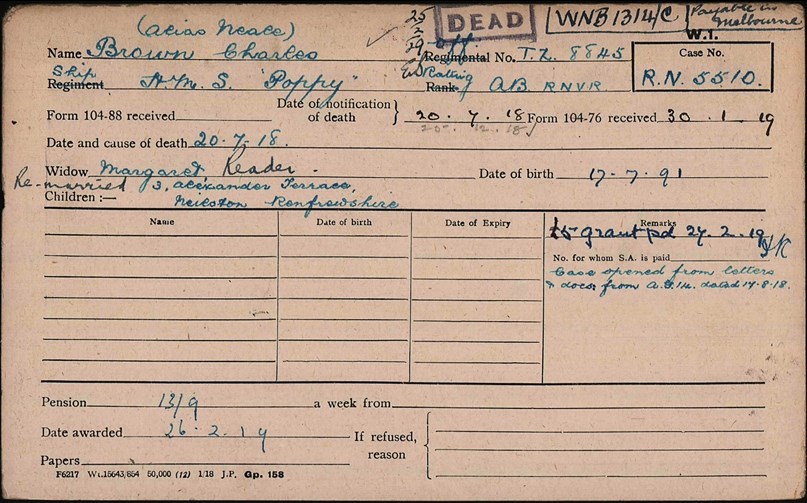 (alias Neale) 25 DEAD WNB1314/C Payable in
2 Melbourne
29 off. W.1.
Name Brown Charles Regimental No. T.Z. 8845 Case No.
Ship Rating R.N. 5510.
Regiment H.M.S. "Poppy" Rank AB RNVR.
Form 104-88 received Date of notification of death } 20. 7. 18 Form 104-76 received 30. 1. 19
20. 12. 18
Date and cause of death 20.7.18.
Widow Margaret, Reader. Date of birth 17.7.91
Re-married 3, Alexander Terrace,
Children :— Neilston Renfrewshire
Name Date of birth Date of Expiry Remarks
£5 grant pd 27.2.19
No. for whom S.A. is paid
Case opened from letters
& docs. from A.G.14. dated 17.8.18.
Pension 13/9 a week from
Date awarded 26.2.19 If refused,
reason
Papers
F6217 Wt.15643/854 50,000 (12) 1/18 J.P. Gp. 158